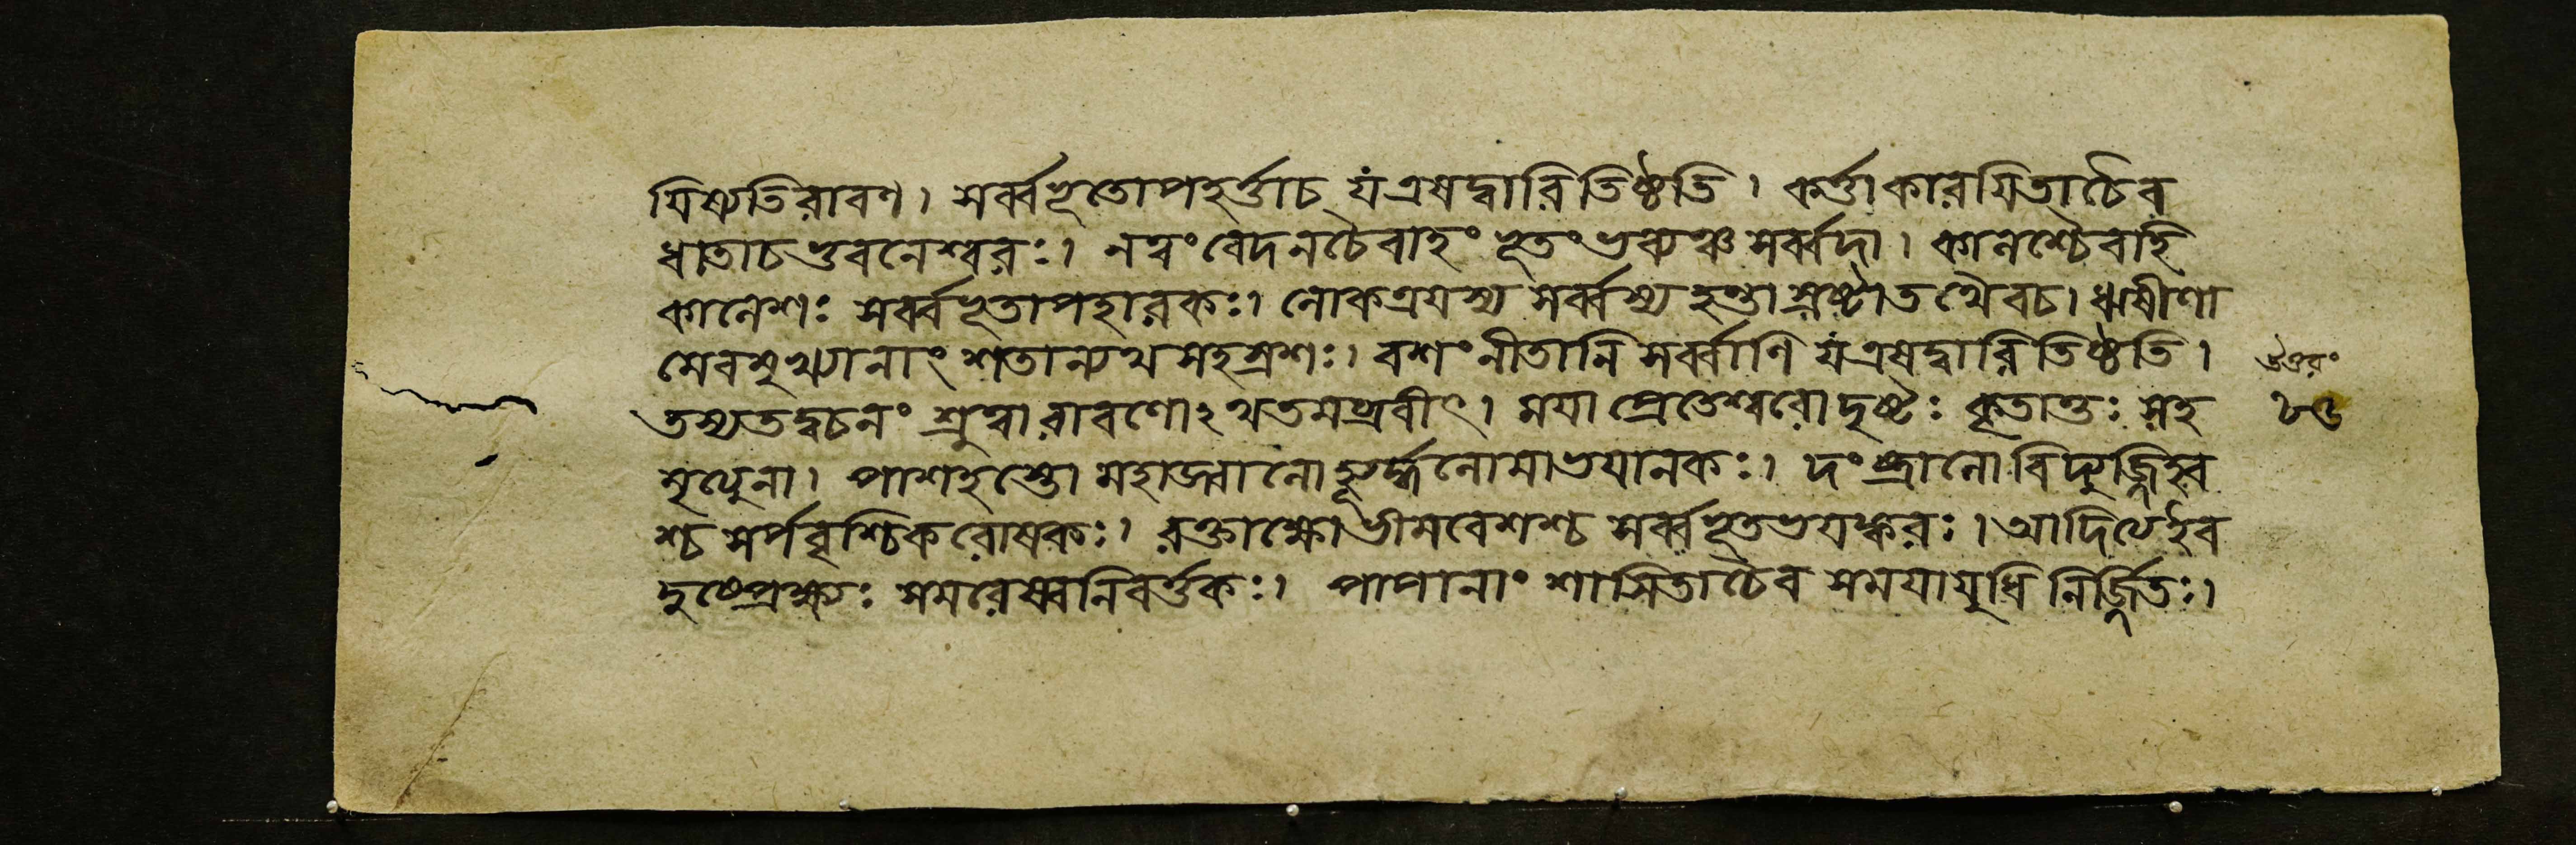 য়িষ্যতি রাবণ। সর্ব্বভূতোপহর্ত্তাচ যং এষ দ্বারি তিষ্ঠতি। কর্ত্তা কারয়িতাচৈব
ধাতাচ ভুবনেশ্বরঃ। নত্বং বেদ নচৈবাহং ভূতং ভব্যঞ্চ সর্ব্বদা। কালশ্চৈবাহি
কালেশঃ সর্ব্বভূতাপহারকঃ। লোক এযস্য সর্ব্বস্য হন্তা স্রষ্টা তথৈবচ। ঋষীণা
মেবমুখ্যানাং শতান্যথ সহস্রশঃ। বশং নীতানি সর্ব্বাণি যং এষ দ্বারি তিষ্ঠতি।
তস্য তদ্বচনং শ্রুত্বা রাবণোঽথ তমব্রবীৎ। ময়া প্রেতেশ্বরো দৃষ্টঃ কৃতান্তঃ সহ
মৃত্যুনা। পাশহস্তো মহাজ্বালো ঊর্দ্ধলোমা ভয়ানকঃ। দংষ্ট্রালো বিদ্যুজ্জিহ্ব
শ্চ সর্পবৃশ্চিকরোষকঃ। রক্তাক্ষো ভীমবেশশ্চ সর্ব্বভূতভয়ঙ্করঃ। আদিত্যেইব
দুষ্প্রেক্ষ্যঃ সমরেষ্বনিবর্ত্তকঃ। পাপানাং শাসিতাচৈব সময়া যুধি নির্জ্জিতঃ।
উত্তরং